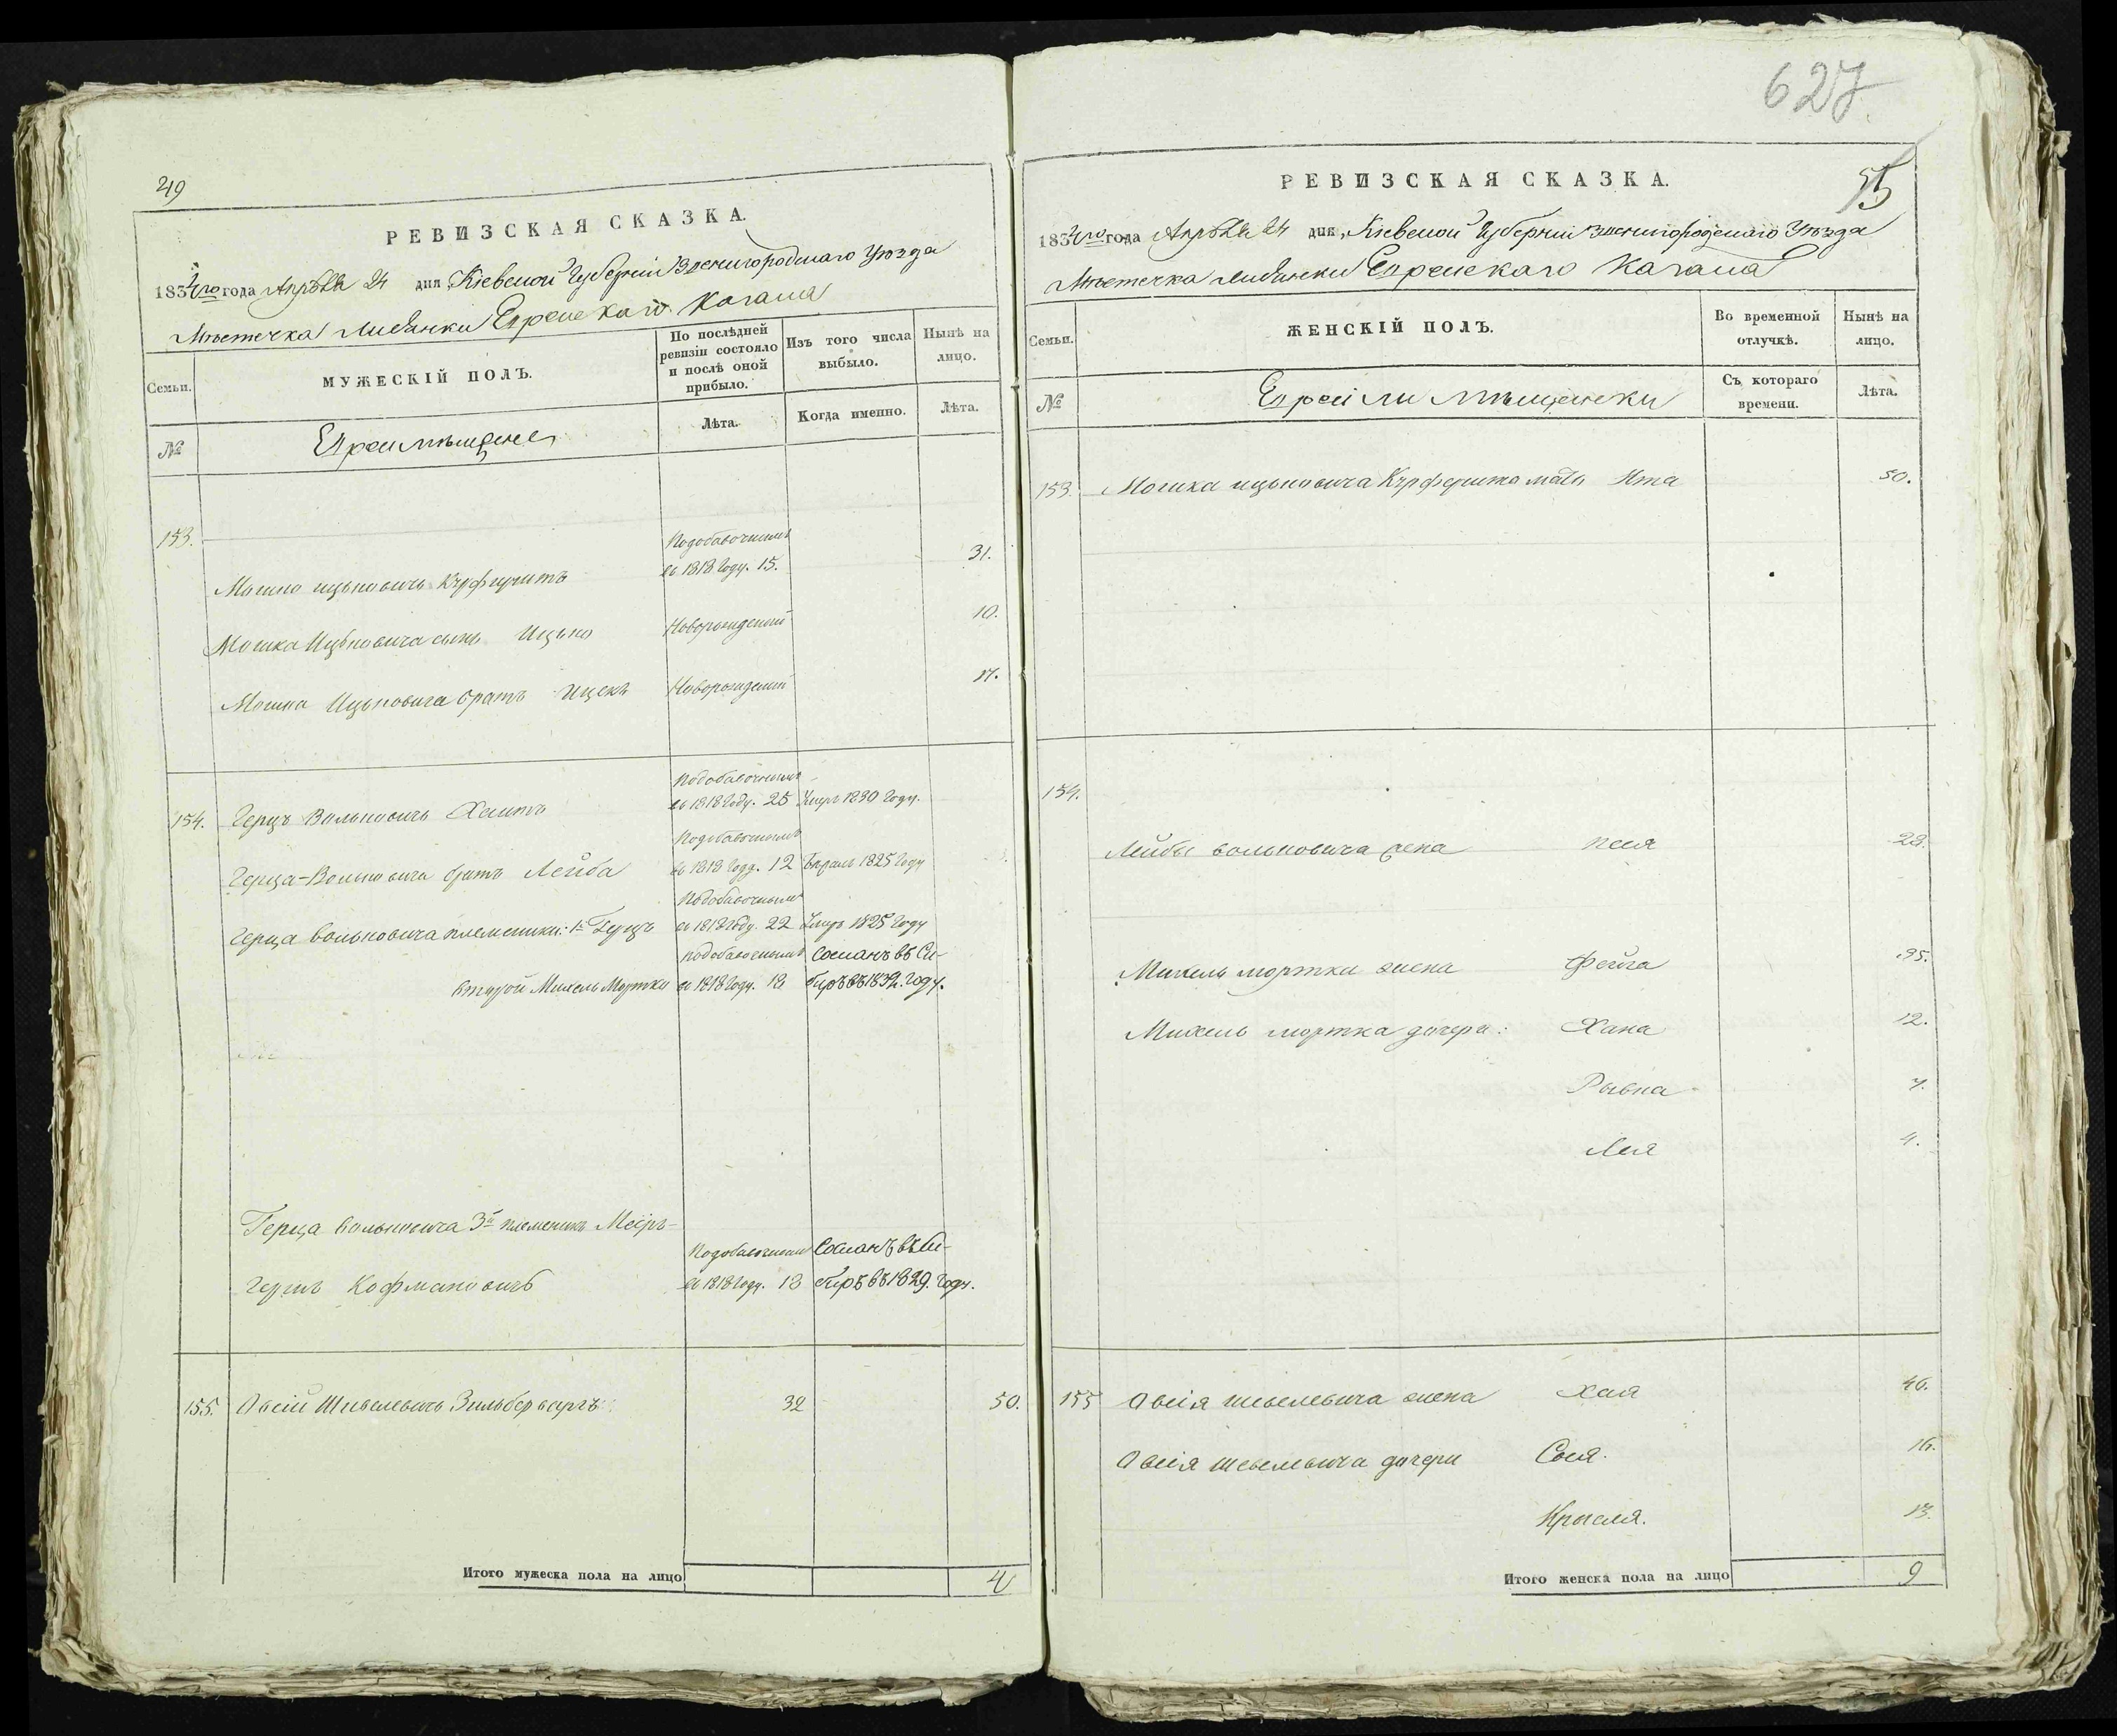 627
49
РЕВИЗСКАЯ СКАЗКА.
1834го года Апрѣля 24 дня, Кіевской Губерніи Звенигородскаго Уѣзда
Мѣстечка Лисянки Еврейскаго Кагала
Семьи.
МУЖЕСКІЙ ПОЛЪ.
По послѣдней ревизіи состояло и послѣ оной прибыло.
Изъ того числа выбыло.
Нынѣ на лицо.
№
Евреи мѣщане
Лѣта.
Когда именно.
Лѣта.
153.
Подобавочнымъ
Мошко Ицьковичь въ 1818 Году. 15. 31.
Мошка Ицьковича сынъ Ицько Новорожденный 10.
Мошка Ицьковича братъ Ицекъ Новорожденный
Подобавочнымъ
154. Герцъ Вольковичь въ 1818 Году. 25 Умеръ 1830 Году.
Подобавочнымъ
Герца Вольковича братъ Лейба въ 1818 Году. 12 1825 Году
Подобавочнымъ
Герца Вольковича племянники: 1й въ 1818 Году. 22 Умеръ 1825 Году
Подобавочнымъ Сосланъ въ Си-
второй Михель Мортко въ 1818 Году. 18 биръ въ 1832. Году.
Герца Вольковича 3й племяникъ Меіръ-
Подобавочнымъ Сосланъ въ Си-
Гершъ Кофмановичъ въ 1818 Году. 18 биръ въ 1829. Году.
155. Овсій Шевелевичь Зильбервергъ 32 50.
Итого мужеска пола на лицо 4
РЕВИЗСКАЯ СКАЗКА.
55
1834го года Апрѣля 24 дня, Кіевской Губерніи Звенигородскаго Уѣзда
Мѣстечка Лисянки Еврейскаго Кагала
Семьи.
ЖЕНСКІЙ ПОЛЪ.
Во временной отлучкѣ.
Нынѣ на лицо.
№
Еврейски Мѣщанки
Съ котораго времени.
Лѣта.
153. Мошка Ицьковича мать Ита 50.
154.
Лейбы Вольковича жена Песя 28.
Михель Мортки жена Фейга 35.
Михель Мортка дочери: Хана 12.
Рывка 7.
Лея 4.
155 Овсія Шевелевича жена Хая 46.
Овсія Шевелевича дочери Сося. 16.
Крейсля. 13.
Итого женска пола на лицо 9